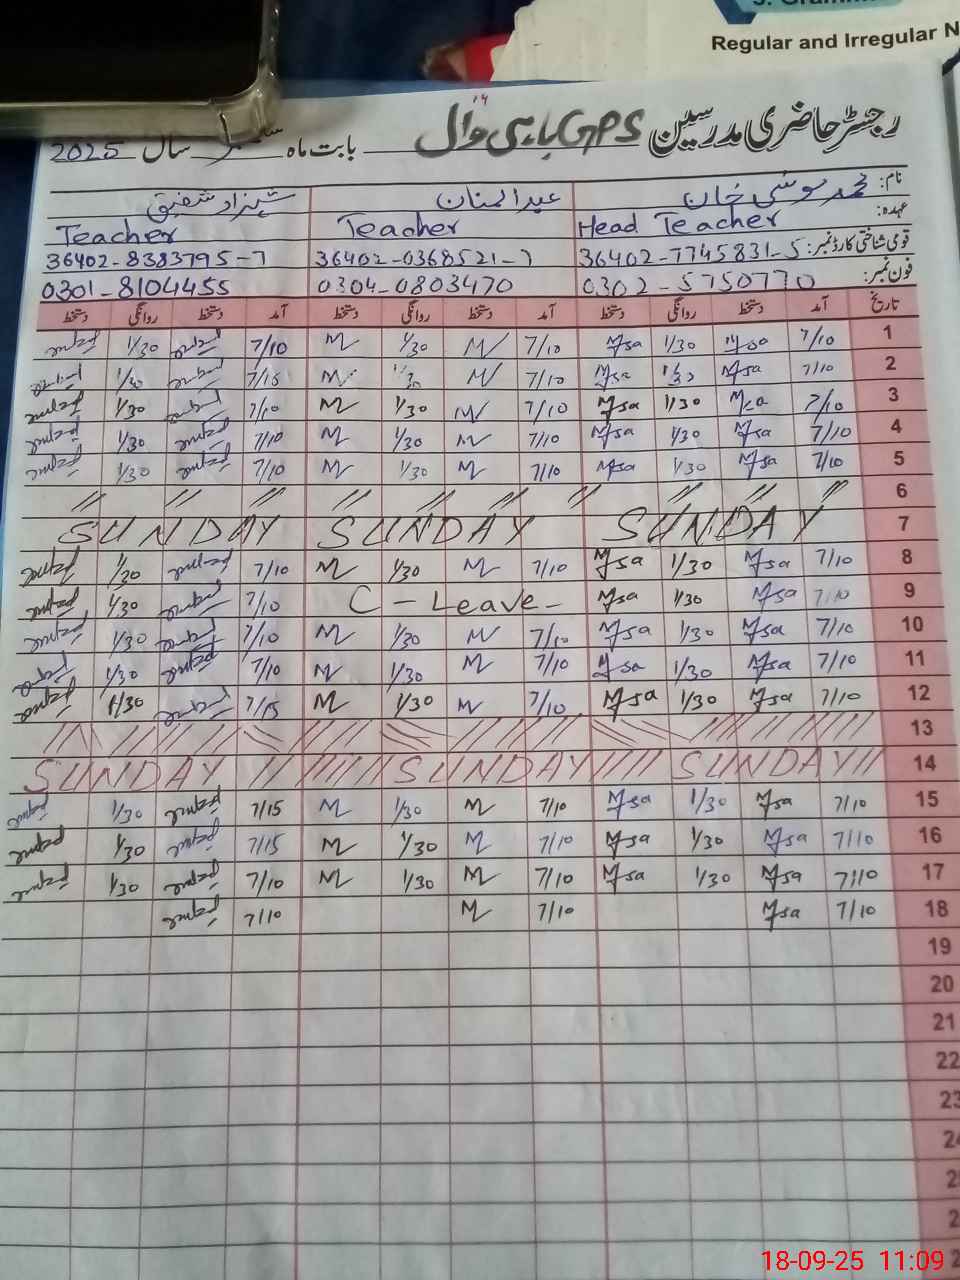 Regular and Irregular N
رجسٹر حاضری مدرسین GPS باہی وال بابت ماہ ستمبر سال 2025
نام: محمد موسیٰ خان عبدالمنان شہزاد شفیق
عہدہ: Head Teacher Teacher Teacher
قومی شناختی کارڈ نمبر: 36402-7745831-5 36402-0368521-7 36402-8383795-7
فون نمبر: 0302-5750770 0304-0803470 0301-8104455
تاریخ آمد دستخط روانگی دستخط آمد دستخط روانگی دستخط آمد دستخط روانگی دستخط
1 7/10 Msa 1/30 Msa 7/10 M 1/30 M 7/10 1/30
2 7/10 Msa 1/30 Msa 7/10 M 1/30 M 7/15 1/30
3 7/10 Msa 1/30 Msa 7/10 M 1/30 M 7/10 1/30
4 7/10 Msa 1/30 Msa 7/10 M 1/30 M 7/10 1/30
5 7/10 Msa 1/30 Msa 7/10 M 1/30 M 7/10 1/30
6
7 SUNDAY SUNDAY SUNDAY
8 7/10 Msa 1/30 Msa 7/10 M 1/30 M 7/10 1/30
9 7/10 Msa 1/30 Msa C - Leave - 7/10 1/30
10 7/10 Msa 1/30 Msa 7/10 M 1/30 M 7/10 1/30
11 7/10 Msa 1/30 Msa 7/10 M 1/30 M 7/10 1/30
12 7/10 Msa 1/30 Msa 7/10 M 1/30 M 7/15 1/30
13
14 SUNDAY SUNDAY SUNDAY
15 7/10 Msa 1/30 Msa 7/10 M 1/30 M 7/15 1/30
16 7/10 Msa 1/30 Msa 7/10 M 1/30 M 7/15 1/30
17 7/10 Msa 1/30 Msa 7/10 M 1/30 M 7/10 1/30
18 7/10 Msa 7/10 M 7/10
19
20
21
22
23
18-09-25 11:09